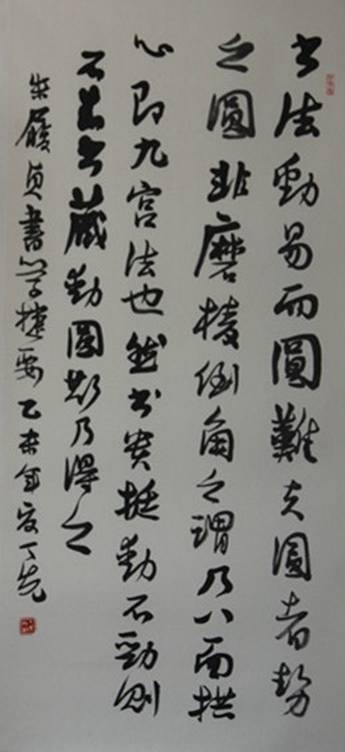 书法勁易而圓難夫圓者勢
之圓非磨棱倒角之謂乃八面拱
心即九宫法也然书貴挺勁不勁则
不成书藏勁圓斯乃得之
朱履貞書學捷要乙未年夏